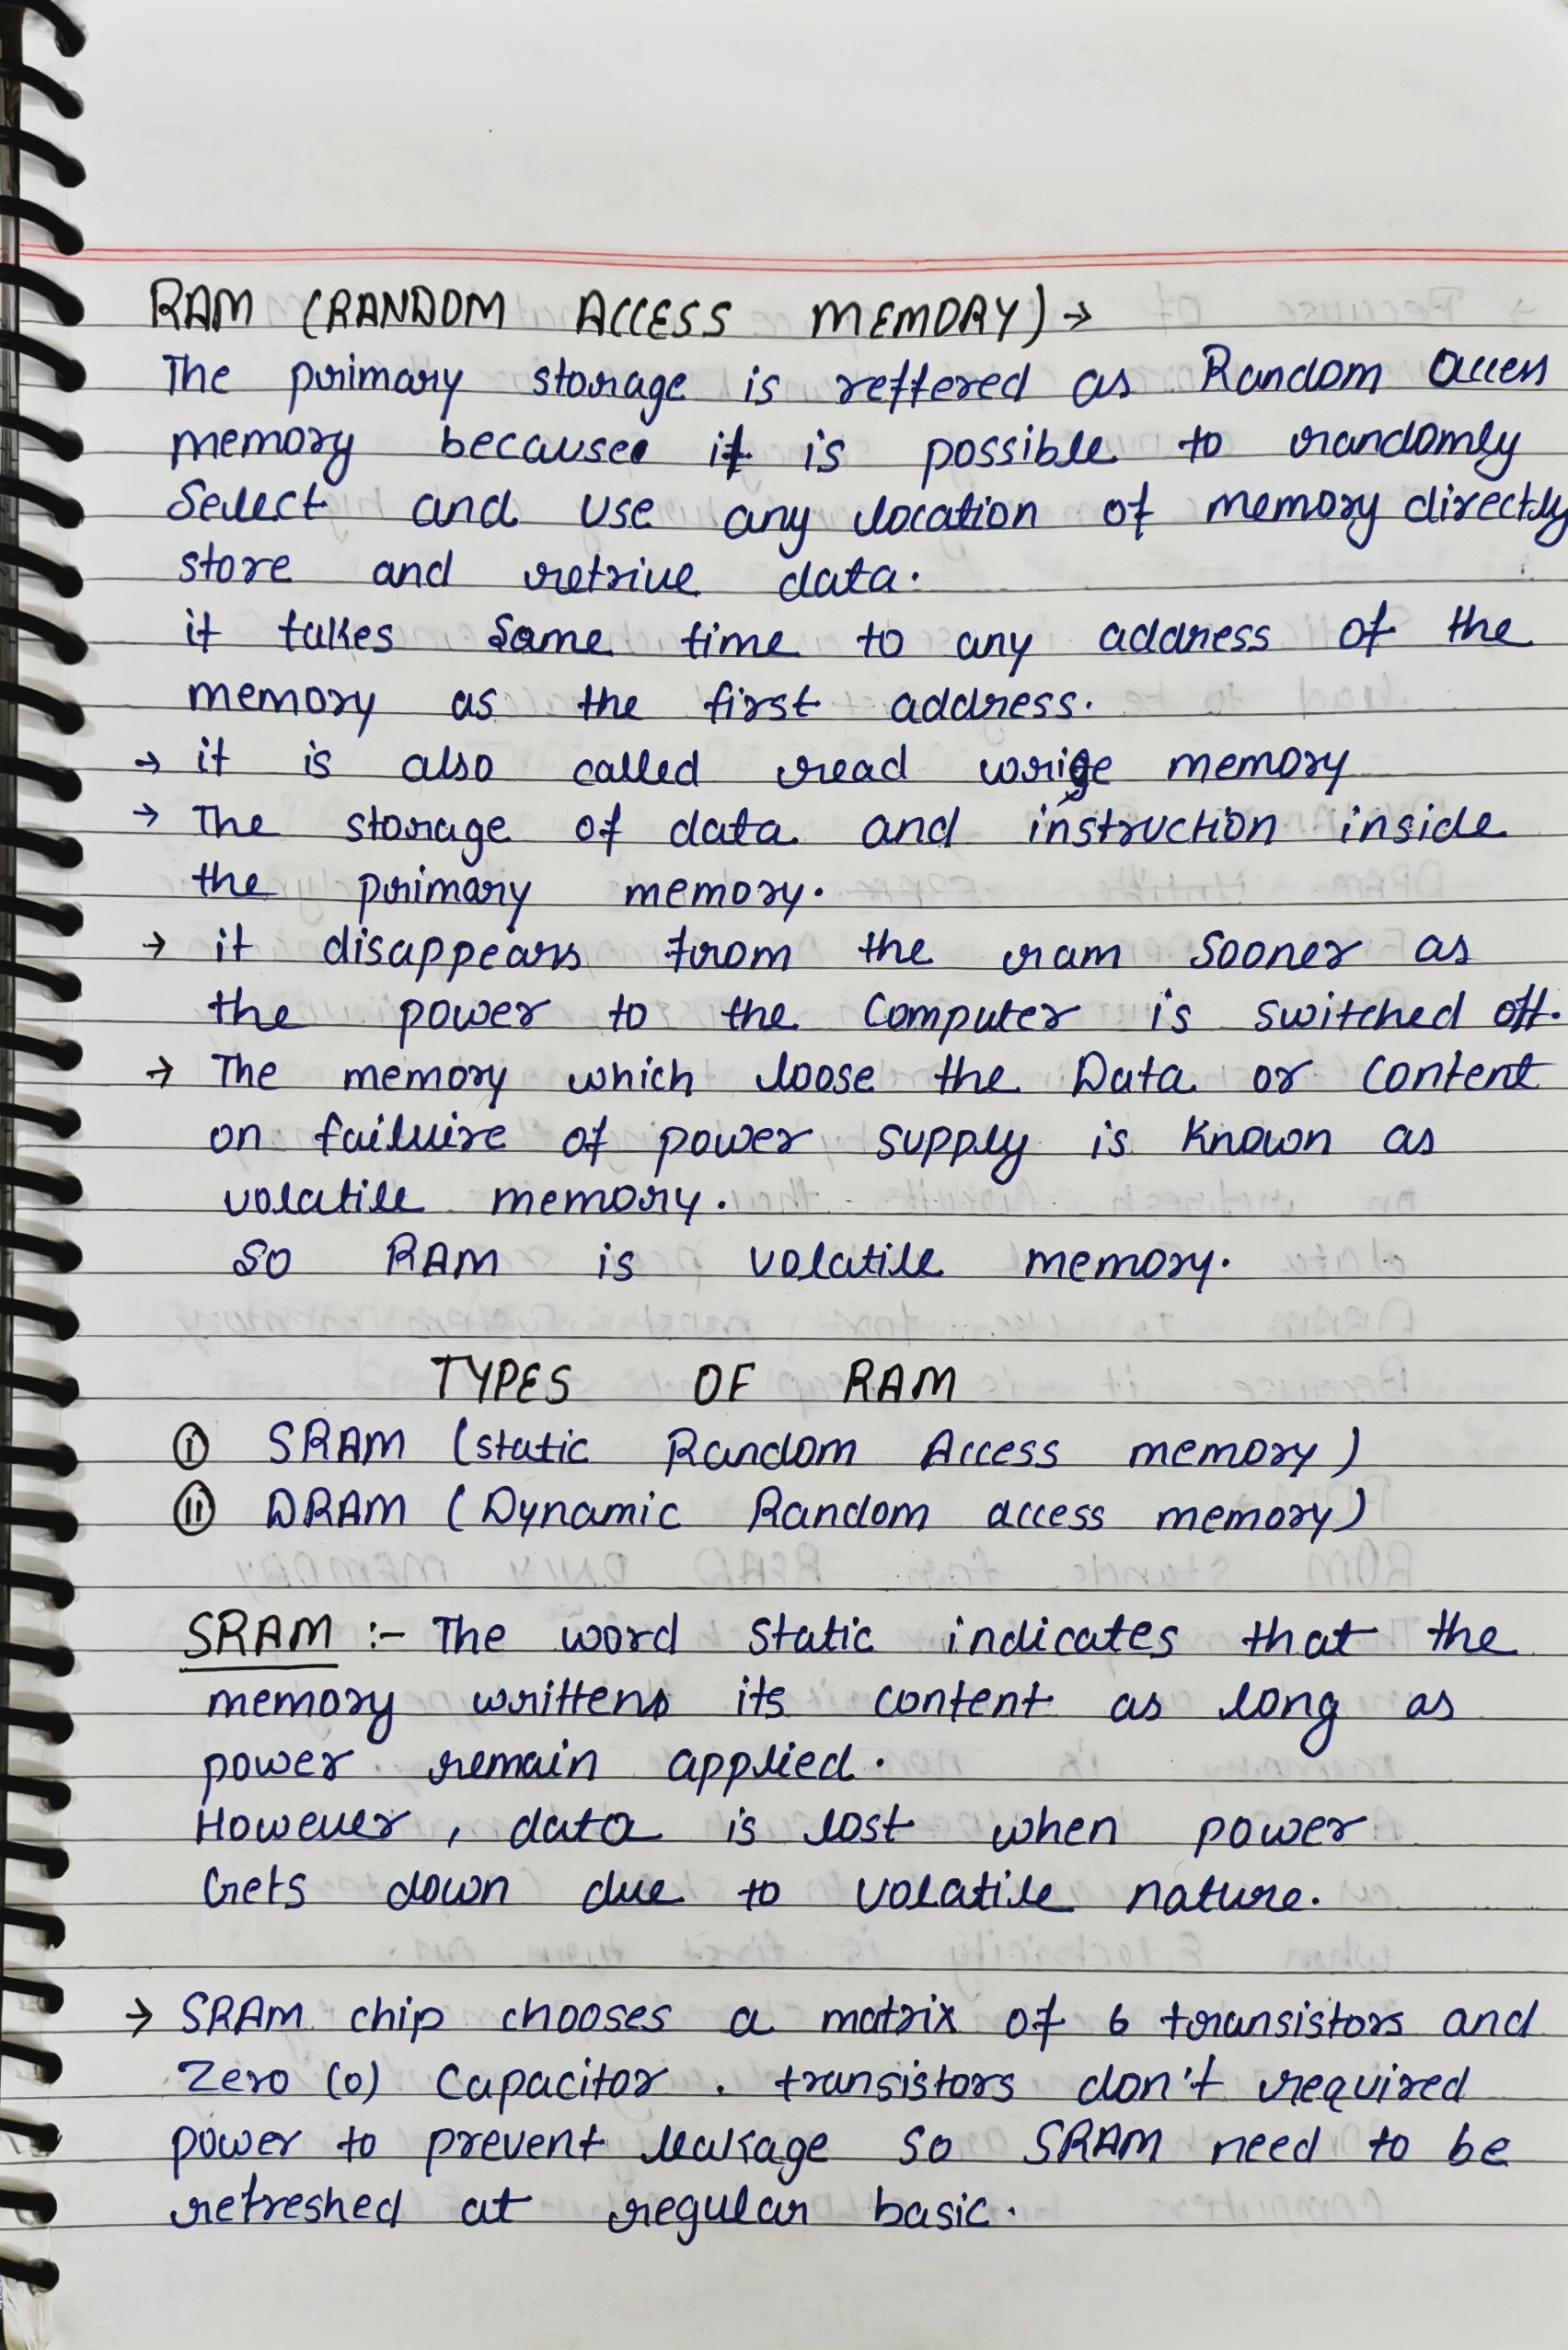 RAM (RANDOM ACCESS MEMORY) →
The primary storage is reffered as Random Access
memory because it is possible to randomly
Select and use any location of memory directly
store and retrive data.
it takes Same time to any address of the
memory as the first address.
→ it is also called read write memory
→ The storage of data and instruction inside
the primary memory.
→ it disappears from the ram Sooner as
the power to the Computer is switched off.
→ The memory which loose the Data or Content
on failuire of power supply is Known as
volatile memory.
So RAM is volatile memory.
TYPES OF RAM
(i) SRAM (static Random Access memory)
(ii) DRAM (Dynamic Random access memory)
SRAM :- The word Static indicates that the
memory writtens its content as long as
power remain applied.
However, data is lost when power
Gets down due to volatile nature.
→ SRAM chip chooses a matrix of 6 transistors and
Zero (0) Capacitor. transistors don't required
power to prevent leakage so SRAM need to be
refreshed at regular basic.